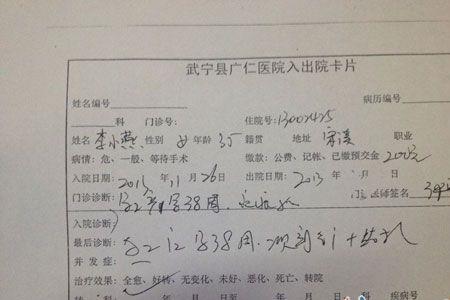 武宁县广仁医院入出院卡片
姓名编号 病历编号
科 门诊号: 住院号: 13002425
姓名 李小燕 性别 女 年龄 35 籍贯 地址 宋溪 职业
病情: 危、一般、等待手术 缴款: 公费、记帐、已缴预交金 200元
入院日期: 2013 年 11 月 26 日 出院日期: 2013 年 月 日
门诊诊断: 孕2产1孕38周. 医师签名
入院诊断:
最后诊断: 孕2产1孕38周.
并发症:
治疗效果: 全愈、好转、无变化、未好、恶化、死亡、转院
科 年 月 日至 年 月 日 科 疾病号